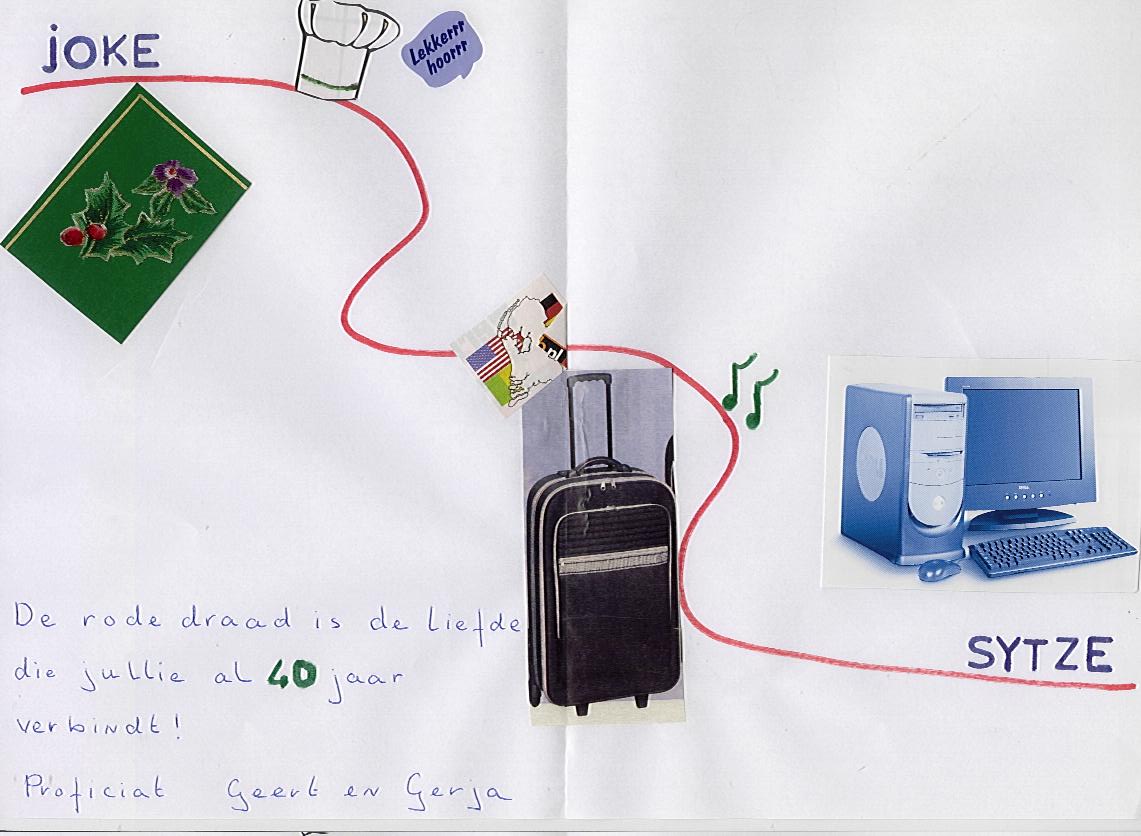 JOKE
Lekkerrr
hoorrr
.nl
DELL
SYTZE
De rode draad is de liefde
die jullie al 40 jaar
verbindt!
Proficiat Geert en Gerja